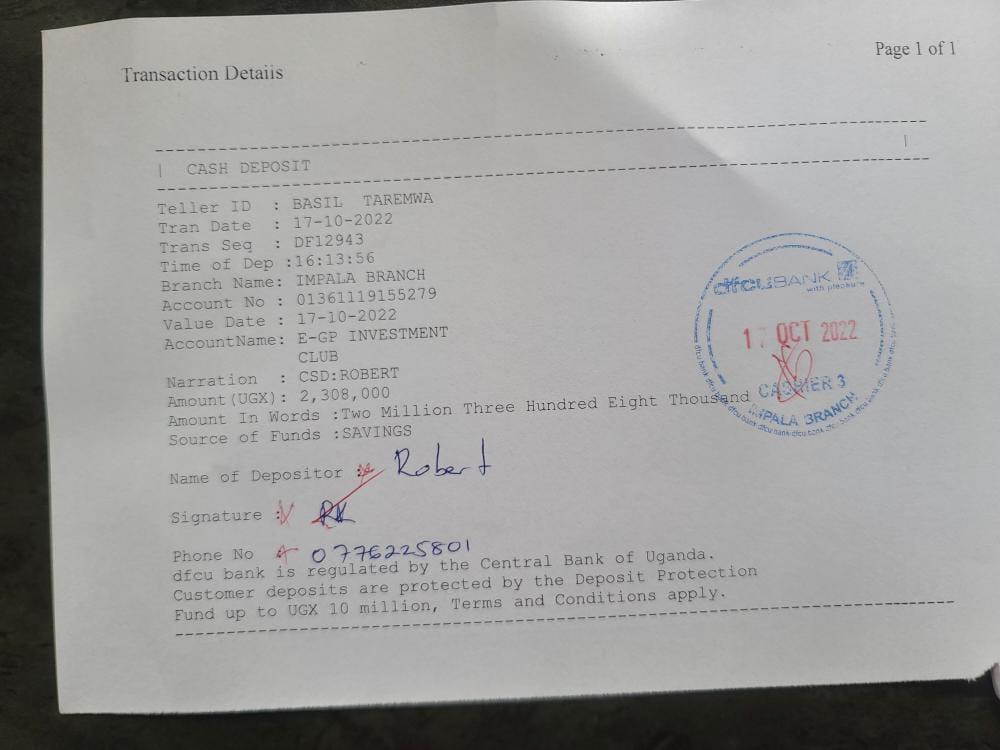 Page 1 of 1
Transaction Detaiis
| CASH DEPOSIT |
Teller ID : BASIL TAREMWA
Tran Date : 17-10-2022
Trans Seq : DF12943
Time of Dep :16:13:56
Branch Name: IMPALA BRANCH
Account No : 01361119155279
Value Date : 17-10-2022
AccountName: E-GP INVESTMENT
CLUB
Narration : CSD:ROBERT
Amount(UGX): 2,308,000
Amount In Words :Two Million Three Hundred Eight Thousand
Source of Funds :SAVINGS
Name of Depositor : Robert
Signature : RK
Phone No 0776225801
dfcu bank is regulated by the Central Bank of Uganda.
Customer deposits are protected by the Deposit Protection
Fund up to UGX 10 million, Terms and Conditions apply.
dfcu BANK
with pleasure
17 OCT 2022
CASHIER 3
IMPALA BRANCH
dfcu bank dfcu bank dfcu bank